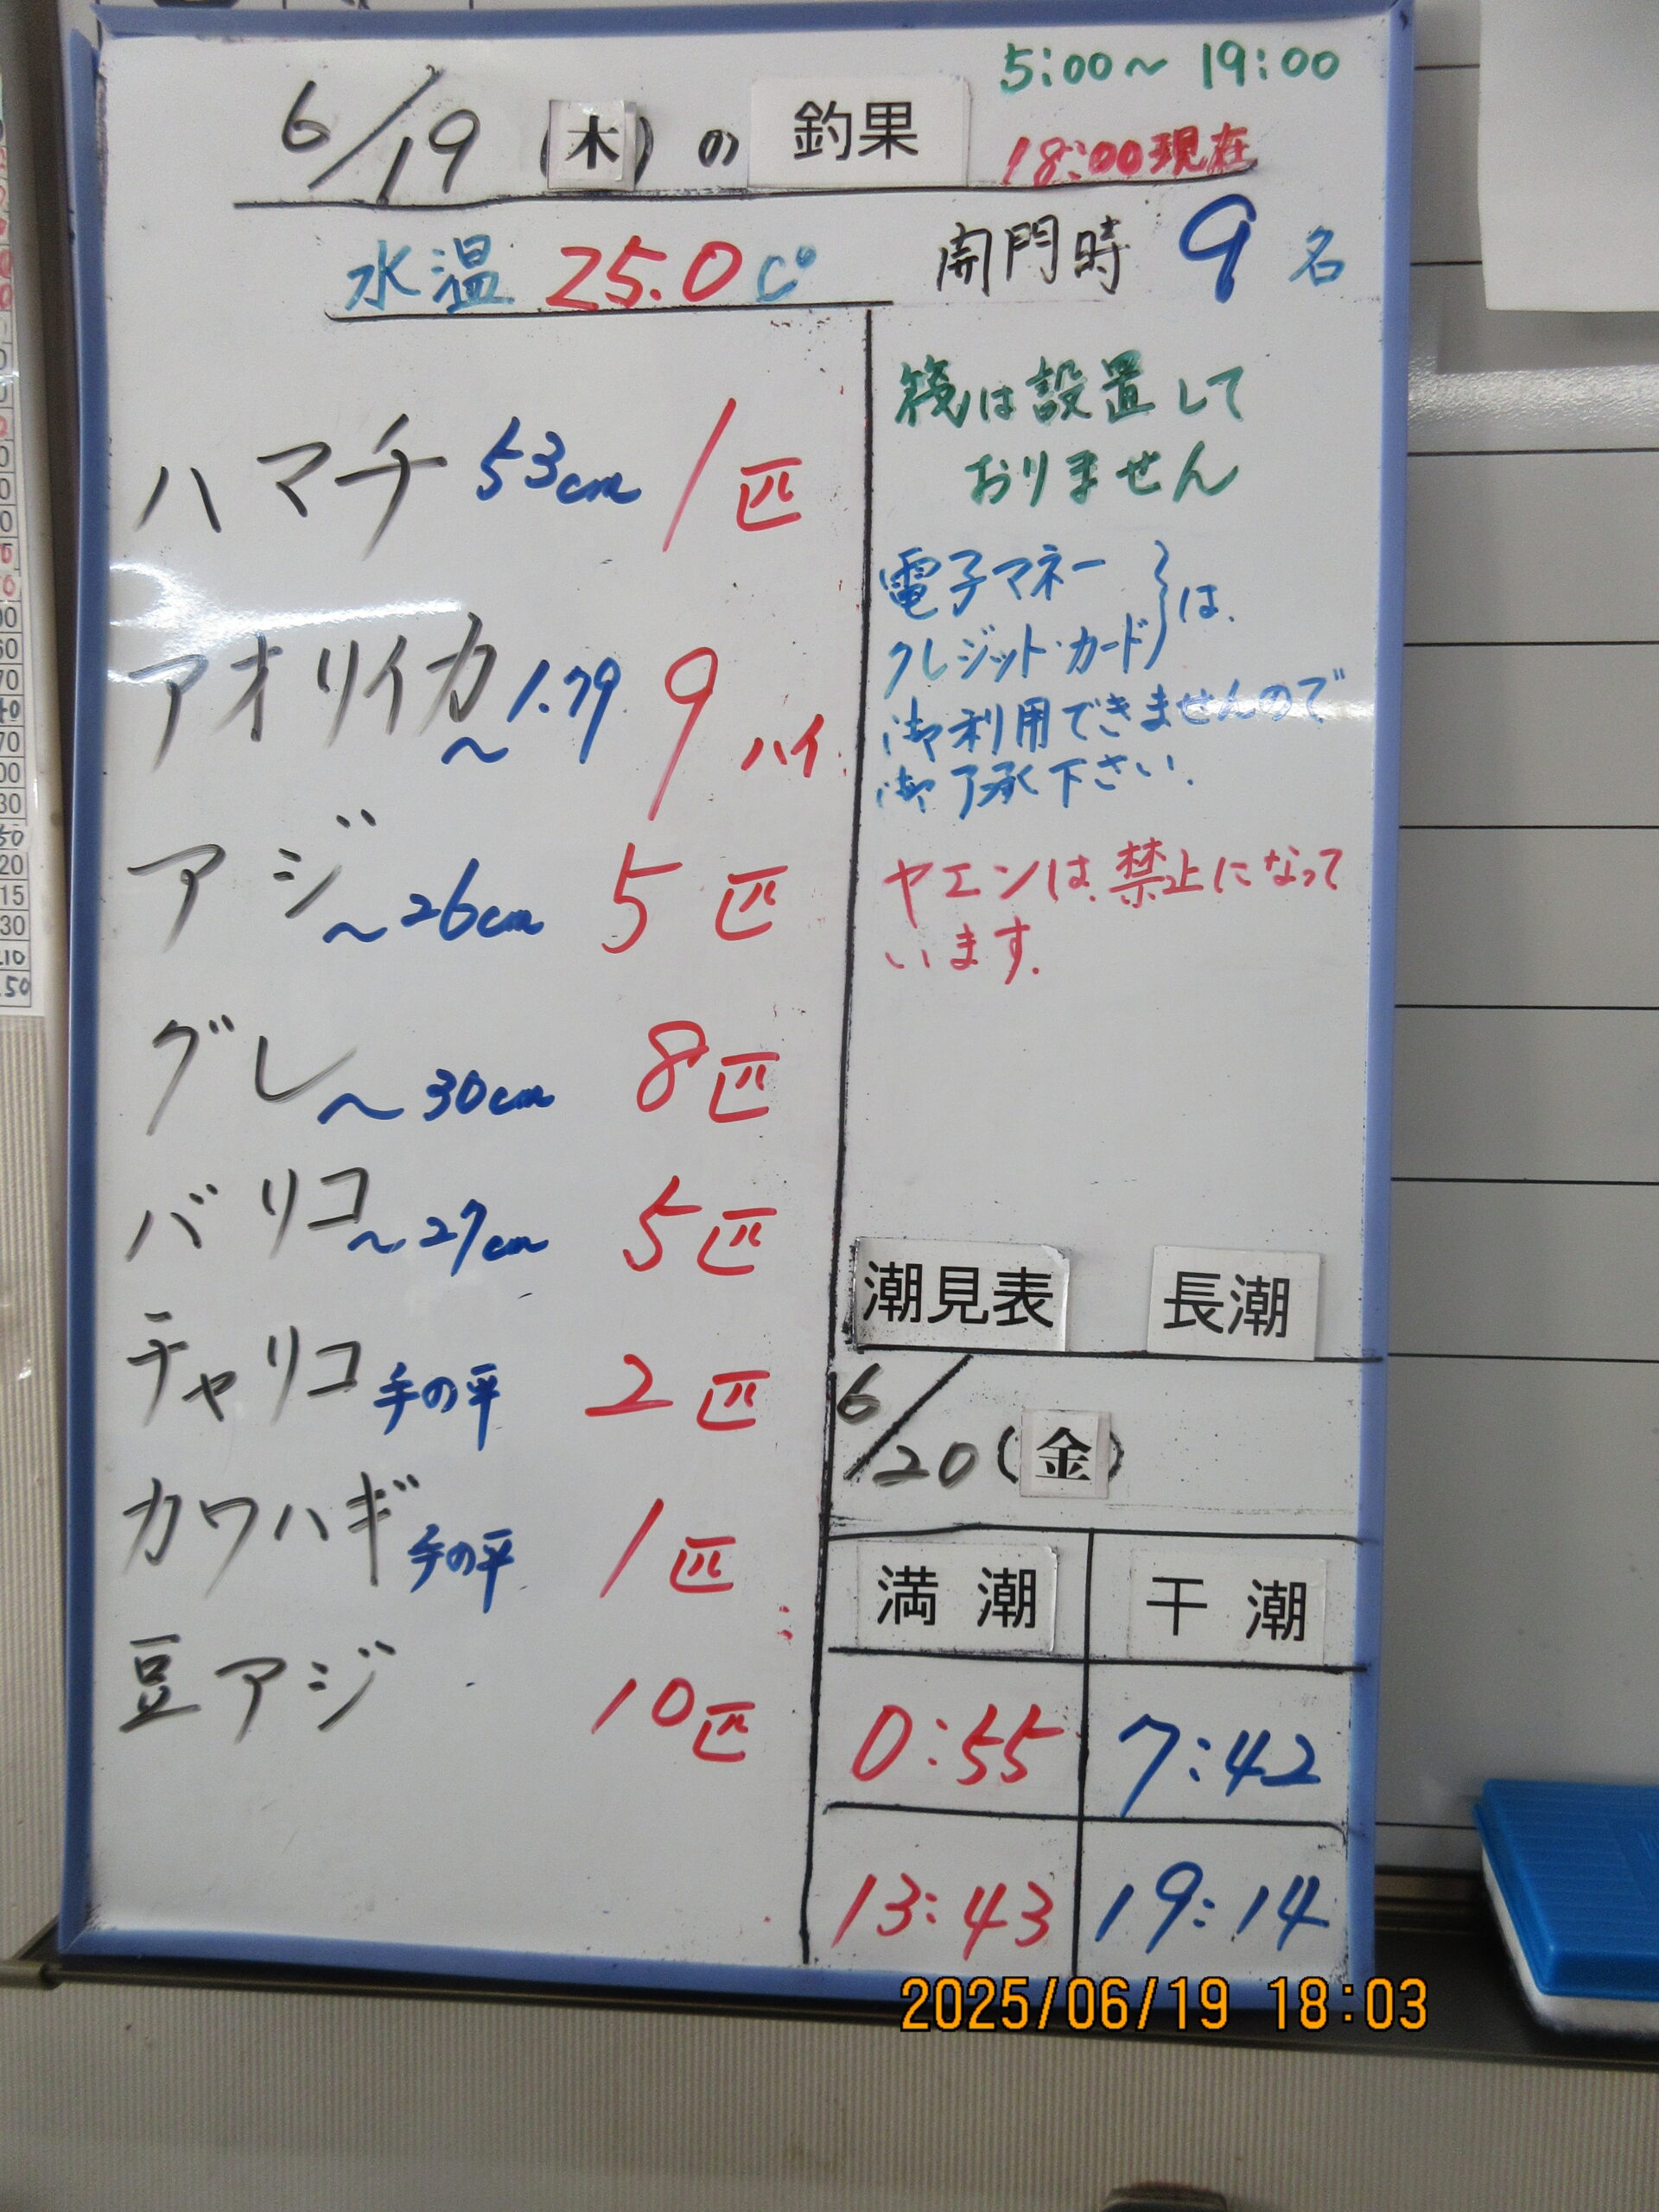 5:00～19:00
6/19(木)の釣果
18:00現在
水温 25.0C°
開門時 9名
ハマチ 53cm 1匹
アオリイカ ～1.79 9ハイ
アジ ～26cm 5匹
グレ ～30cm 8匹
バリコ ～27cm 5匹
チャリコ 手の平 2匹
カワハギ 手の平 1匹
豆アジ 10匹
筏は設置して
おりません
電子マネー
クレジット・カード}は、
御利用できませんので
御了承下さい.
ヤエンは、禁止になって
います.
潮見表 長潮
6/20(金)
満潮 干潮
0:55 7:42
13:43 19:14
2025/06/19 18:03